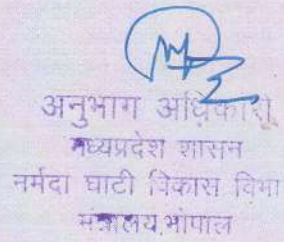 अनुभाग अधिकारी
मध्यप्रदेश शासन
नर्मदा घाटी विकास विभा
मंत्रालय, भोपाल